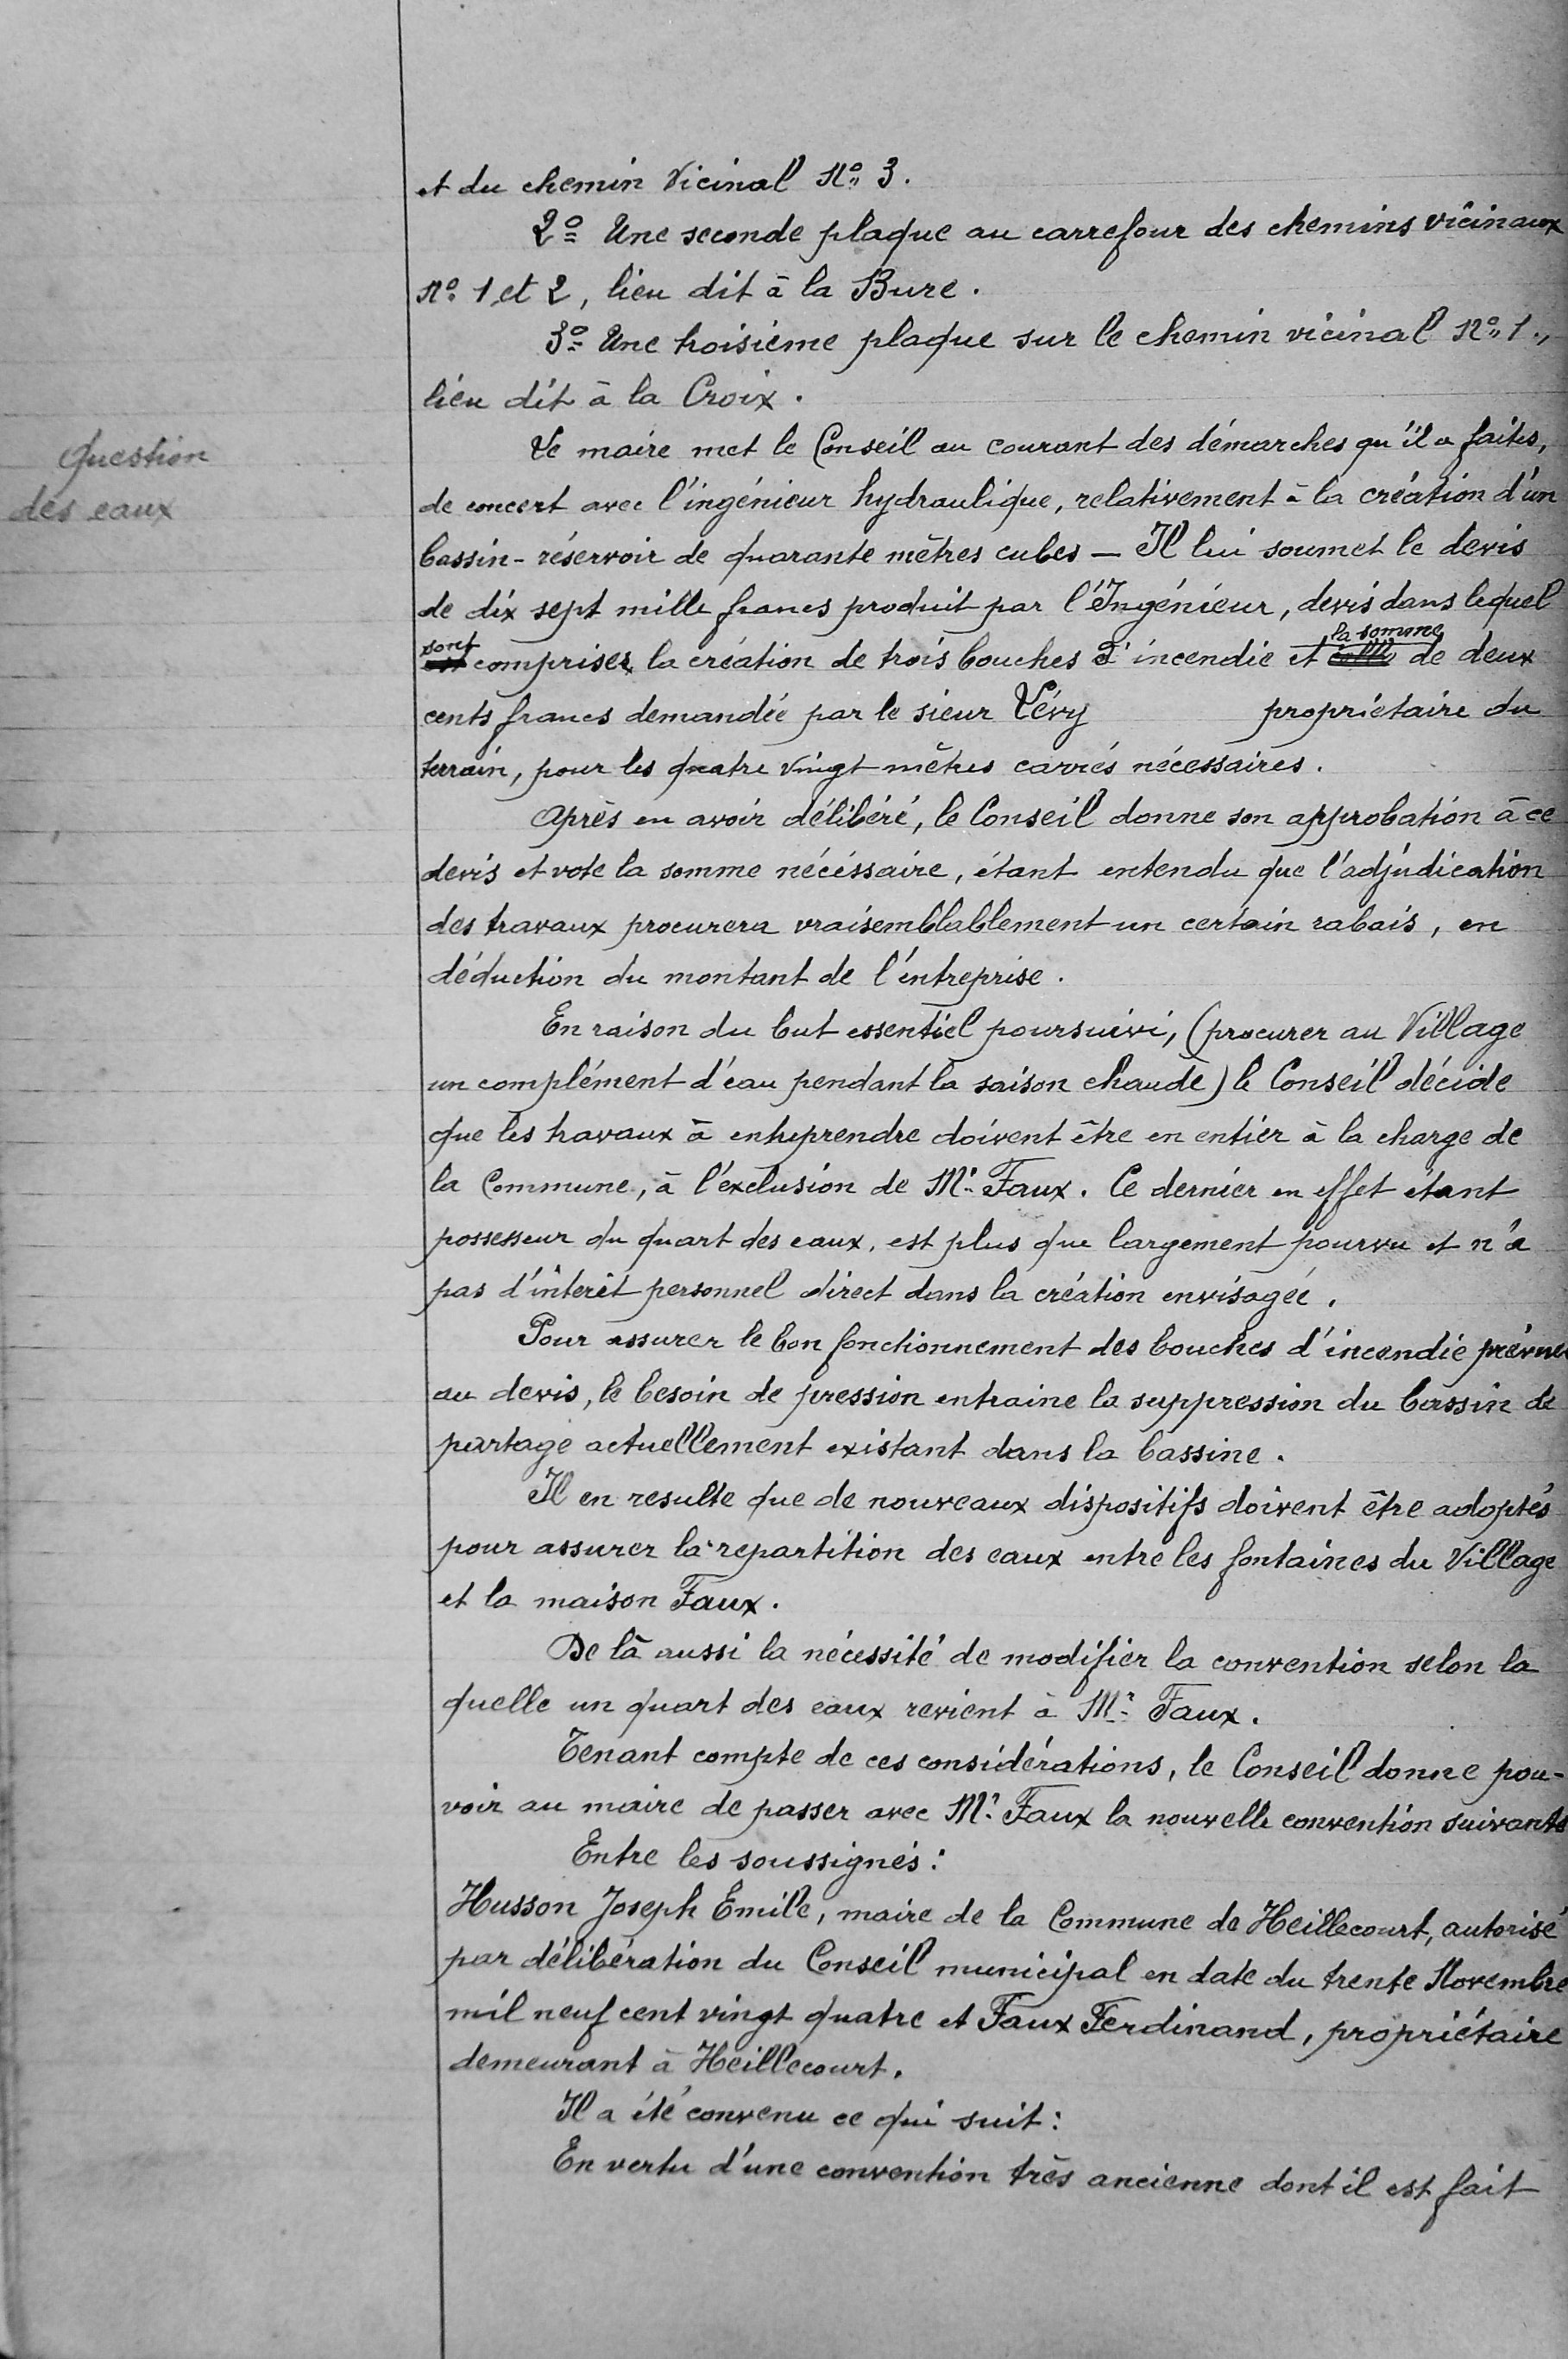 et du chemin Vicinal No 3.
2o Une seconde plaque au carrefour des chemins vicinaux
No 1 et 2, lieu dit à la Bure.
3o Une troisième plaque sur le chemin vicinal No 1.,
lieu dit à la Croix.
Question
des eaux
Le maire met le Conseil au courant des démarches qu'il a faites,
de concert avec l'ingénieur hydraulique, relativement à la création d'un
bassin-réservoir de quarante mètres cubes — Il lui soumet le devis
de dix sept mille francs produit par l'Ingénieur, devis dans lequel
sont comprises la création de trois bouches d'incendie et la somme de deux
cents francs demandée par le sieur Lévy propriétaire du
terrain, pour les quatre vingt mètres carrés nécessaires.
Après en avoir délibéré, le Conseil donne son approbation à ce
devis et vote la somme nécéssaire, étant entendu que l'adjudication
des travaux procurera vraisemblablement un certain rabais, en
déduction du montant de l'entreprise.
En raison du but essentiel poursuivi, (procurer au Village
un complément d'eau pendant la saison chaude) le Conseil décide
que les travaux à entreprendre doivent être en entier à la charge de
la Commune, à l'exclusion de Mr Faux. Ce dernier en effet étant
possesseur du quart des eaux, est plus que largement pourvu et n'a
pas d'intérêt personnel direct dans la création envisagée.
Pour assurer le bon fonctionnement des bouches d'incendie prévues
au devis, le besoin de pression entraine la suppression du bassin de
partage actuellement existant dans la bassine.
Il en resulte que de nouveaux dispositifs doivent être adoptés
pour assurer la repartition des eaux entre les fontaines du Village
et la maison Faux.
De là aussi la nécessité de modifier la convention selon la
quelle un quart des eaux revient à Mr Faux.
Tenant compte de ces considérations, le Conseil donne pou-
voir au maire de passer avec Mr Faux la nouvelle convention suivante
Entre les soussignés:
Husson Joseph Emile, maire de la Commune de Heillecourt, autorisé
par délibération du Conseil municipal en date du trente Novembre
mil neuf cent vingt quatre et Faux Ferdinand, propriétaire
demeurant à Heillecourt.
Il a été convenu ce qui suit:
En vertu d'une convention très ancienne dont il est fait